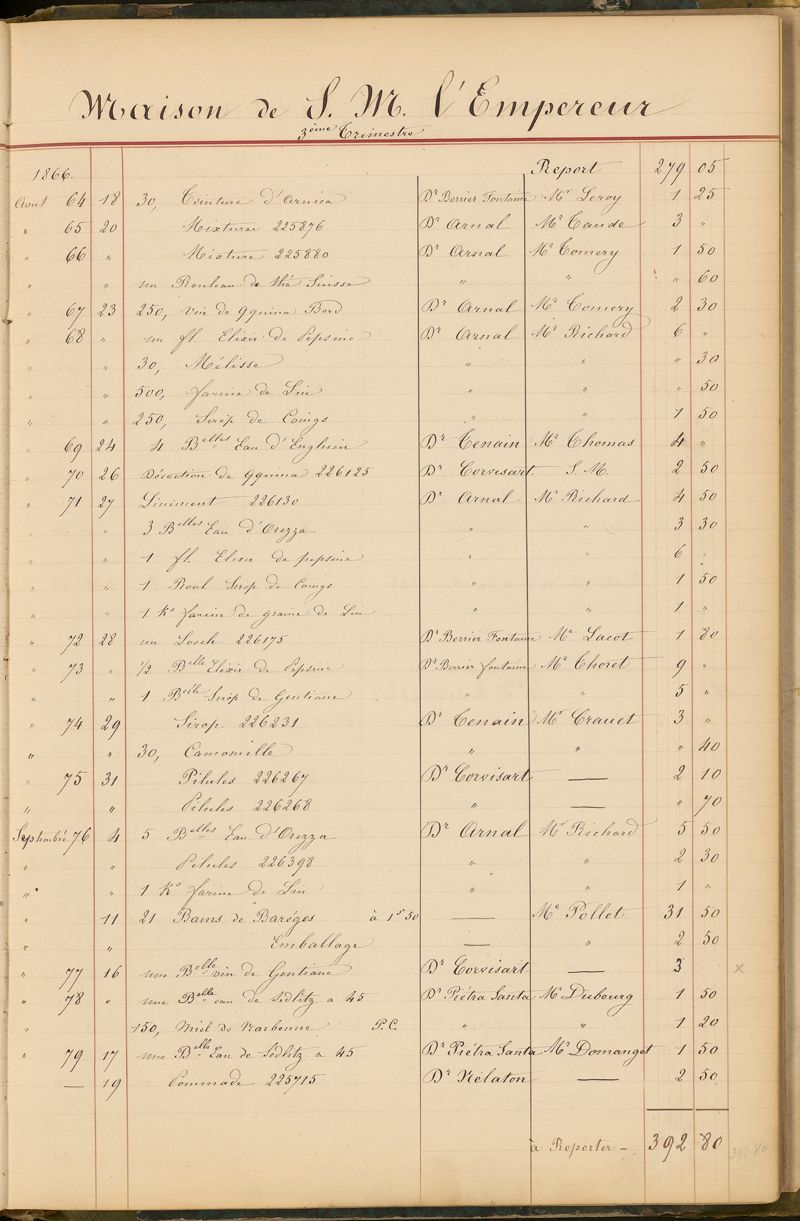 Maison de S. M. l'Empereur
3ème Trimestre
1866. Report 279 05
Aout 64 18 30, Teinture d'Arnica Dr Berrier Fontaine Mr Leroy 1 25
" 65 20 Mixture 225876 Dr Arnal Mr Caude 3 "
" 66 " Mixture 225880 Dr Arnal Mr Comery 1 50
" " un Rouleau de thé Suisse " " " 60
" 67 23 250, vin de qquina Bord Dr Arnal Mr Comery 2 30
" 68 " un fl. Elixir de Pepsine Dr Arnal Mr Richard 6 "
" " 30, Mélisse " " " 30
" " 500, farine de Lin " " " 50
" " 250, Sirop de Coings " " 1 50
" 69 24 4 Belles Eau d'Enghien Dr Tenain Mr Thomas 4 "
" 70 26 Décoction de qquina 226125 Dr Corvisart S. M. 2 50
" 71 27 Liniment 226130 Dr Arnal Mr Richard 4 50
" 3 Belles Eau d'Orezza " " 3 30
" " 1 fl. Elixir de pepsine " " 6 "
" " 1 Roul Sirop de Coings " " 1 50
" " 1 Ko farine de graine de Lin " " 1 "
" 72 28 un Looch 226175 Dr Berrier Fontaine Mr Lacot 1 80
" 73 " 1/2 Belle Elixir de Pepsine Dr Berrier fontaine Mr Choret 9 "
" " 1 Belle Sirop de Gentiane " " 5 "
" 74 29 Sirop 226231 Dr Tenain Mr Crauet 3 "
" " 30, Camomille " " " 40
" 75 31 Pilules 226267 Dr Corvisart — 2 10
" " Pilules 226268 " — " 70
Septembre 76 4 5 Belles Eau d'Orezza Dr Arnal Mr Richard 5 50
" " Pilules 226398 " " 2 30
" " 1 Ko farine de Lin " " 1 "
" 11 21 Bains de Baréges à 1f 50 — Mr Pollet 31 50
" " Emballage — " 2 50
" 77 16 une Belle vin de Gentiane Dr Corvisart — 3 x
" 78 " une Belle eau de Sedlitz a 45 Dr Piétra Santa Mr Dubourg 1 50
" 150, Miel de Narbonne P.C. " " 1 20
" 79 17 une Belle Eau de Sedlitz a 45 Dr Piétra Santa Mr Domanget 1 50
— 19 Pommade 225715 Dr Nélaton — 2 50
à Reporter — 392 80
392 80